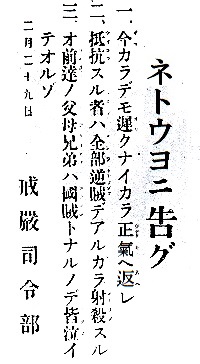 ネトウヨニ告グ
一、今カラデモ遲クナイカラ正氣ヘ返レ
二、抵抗スル者ハ全部逆賊デアルカラ射殺スル
三、オ前達ノ父母兄弟ハ國賊トナルノデ皆泣イ
テオルゾ
二月二十九日
戒嚴司令部